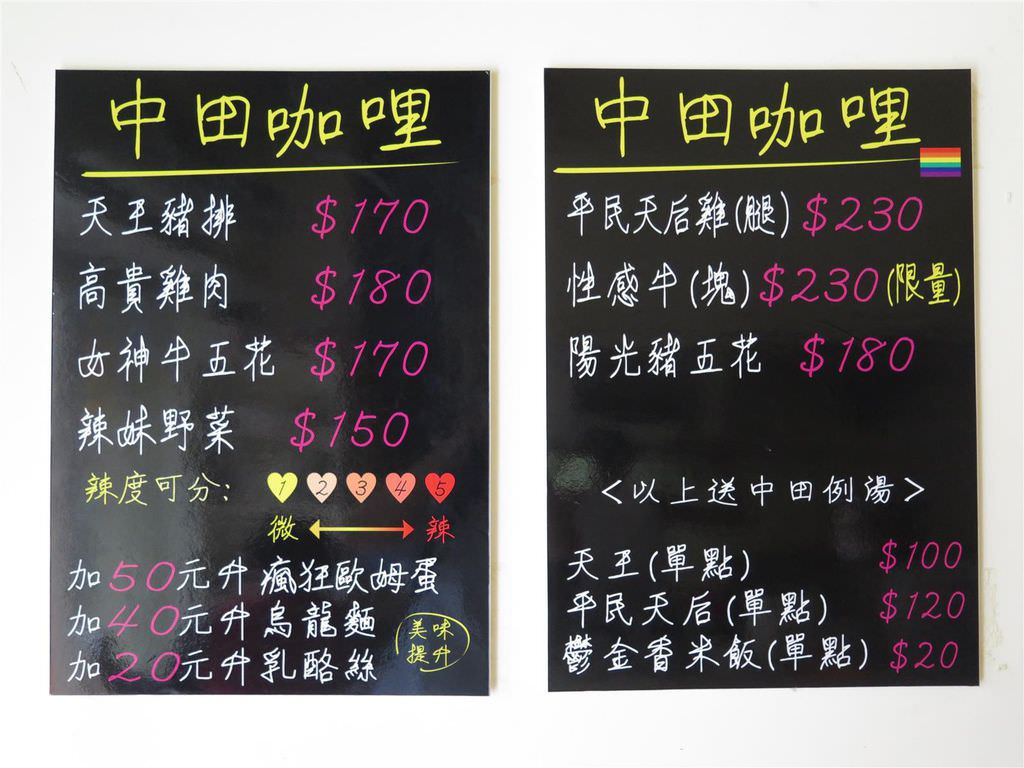 中田咖哩
天王豬排 $170
高貴雞肉 $180
女神牛五花 $170
辣妹野菜 $150
辣度可分: 1 2 3 4 5
微 辣
加50元升瘋狂歐姆蛋
加40元升烏龍麵
加20元升乳酪絲
美味
提升
中田咖哩
平民天后雞(腿) $230
性感牛(塊) $230(限量)
陽光豬五花 $180
<以上送中田例湯>
天王(單點) $100
平民天后(單點) $120
鬱金香米飯(單點) $20